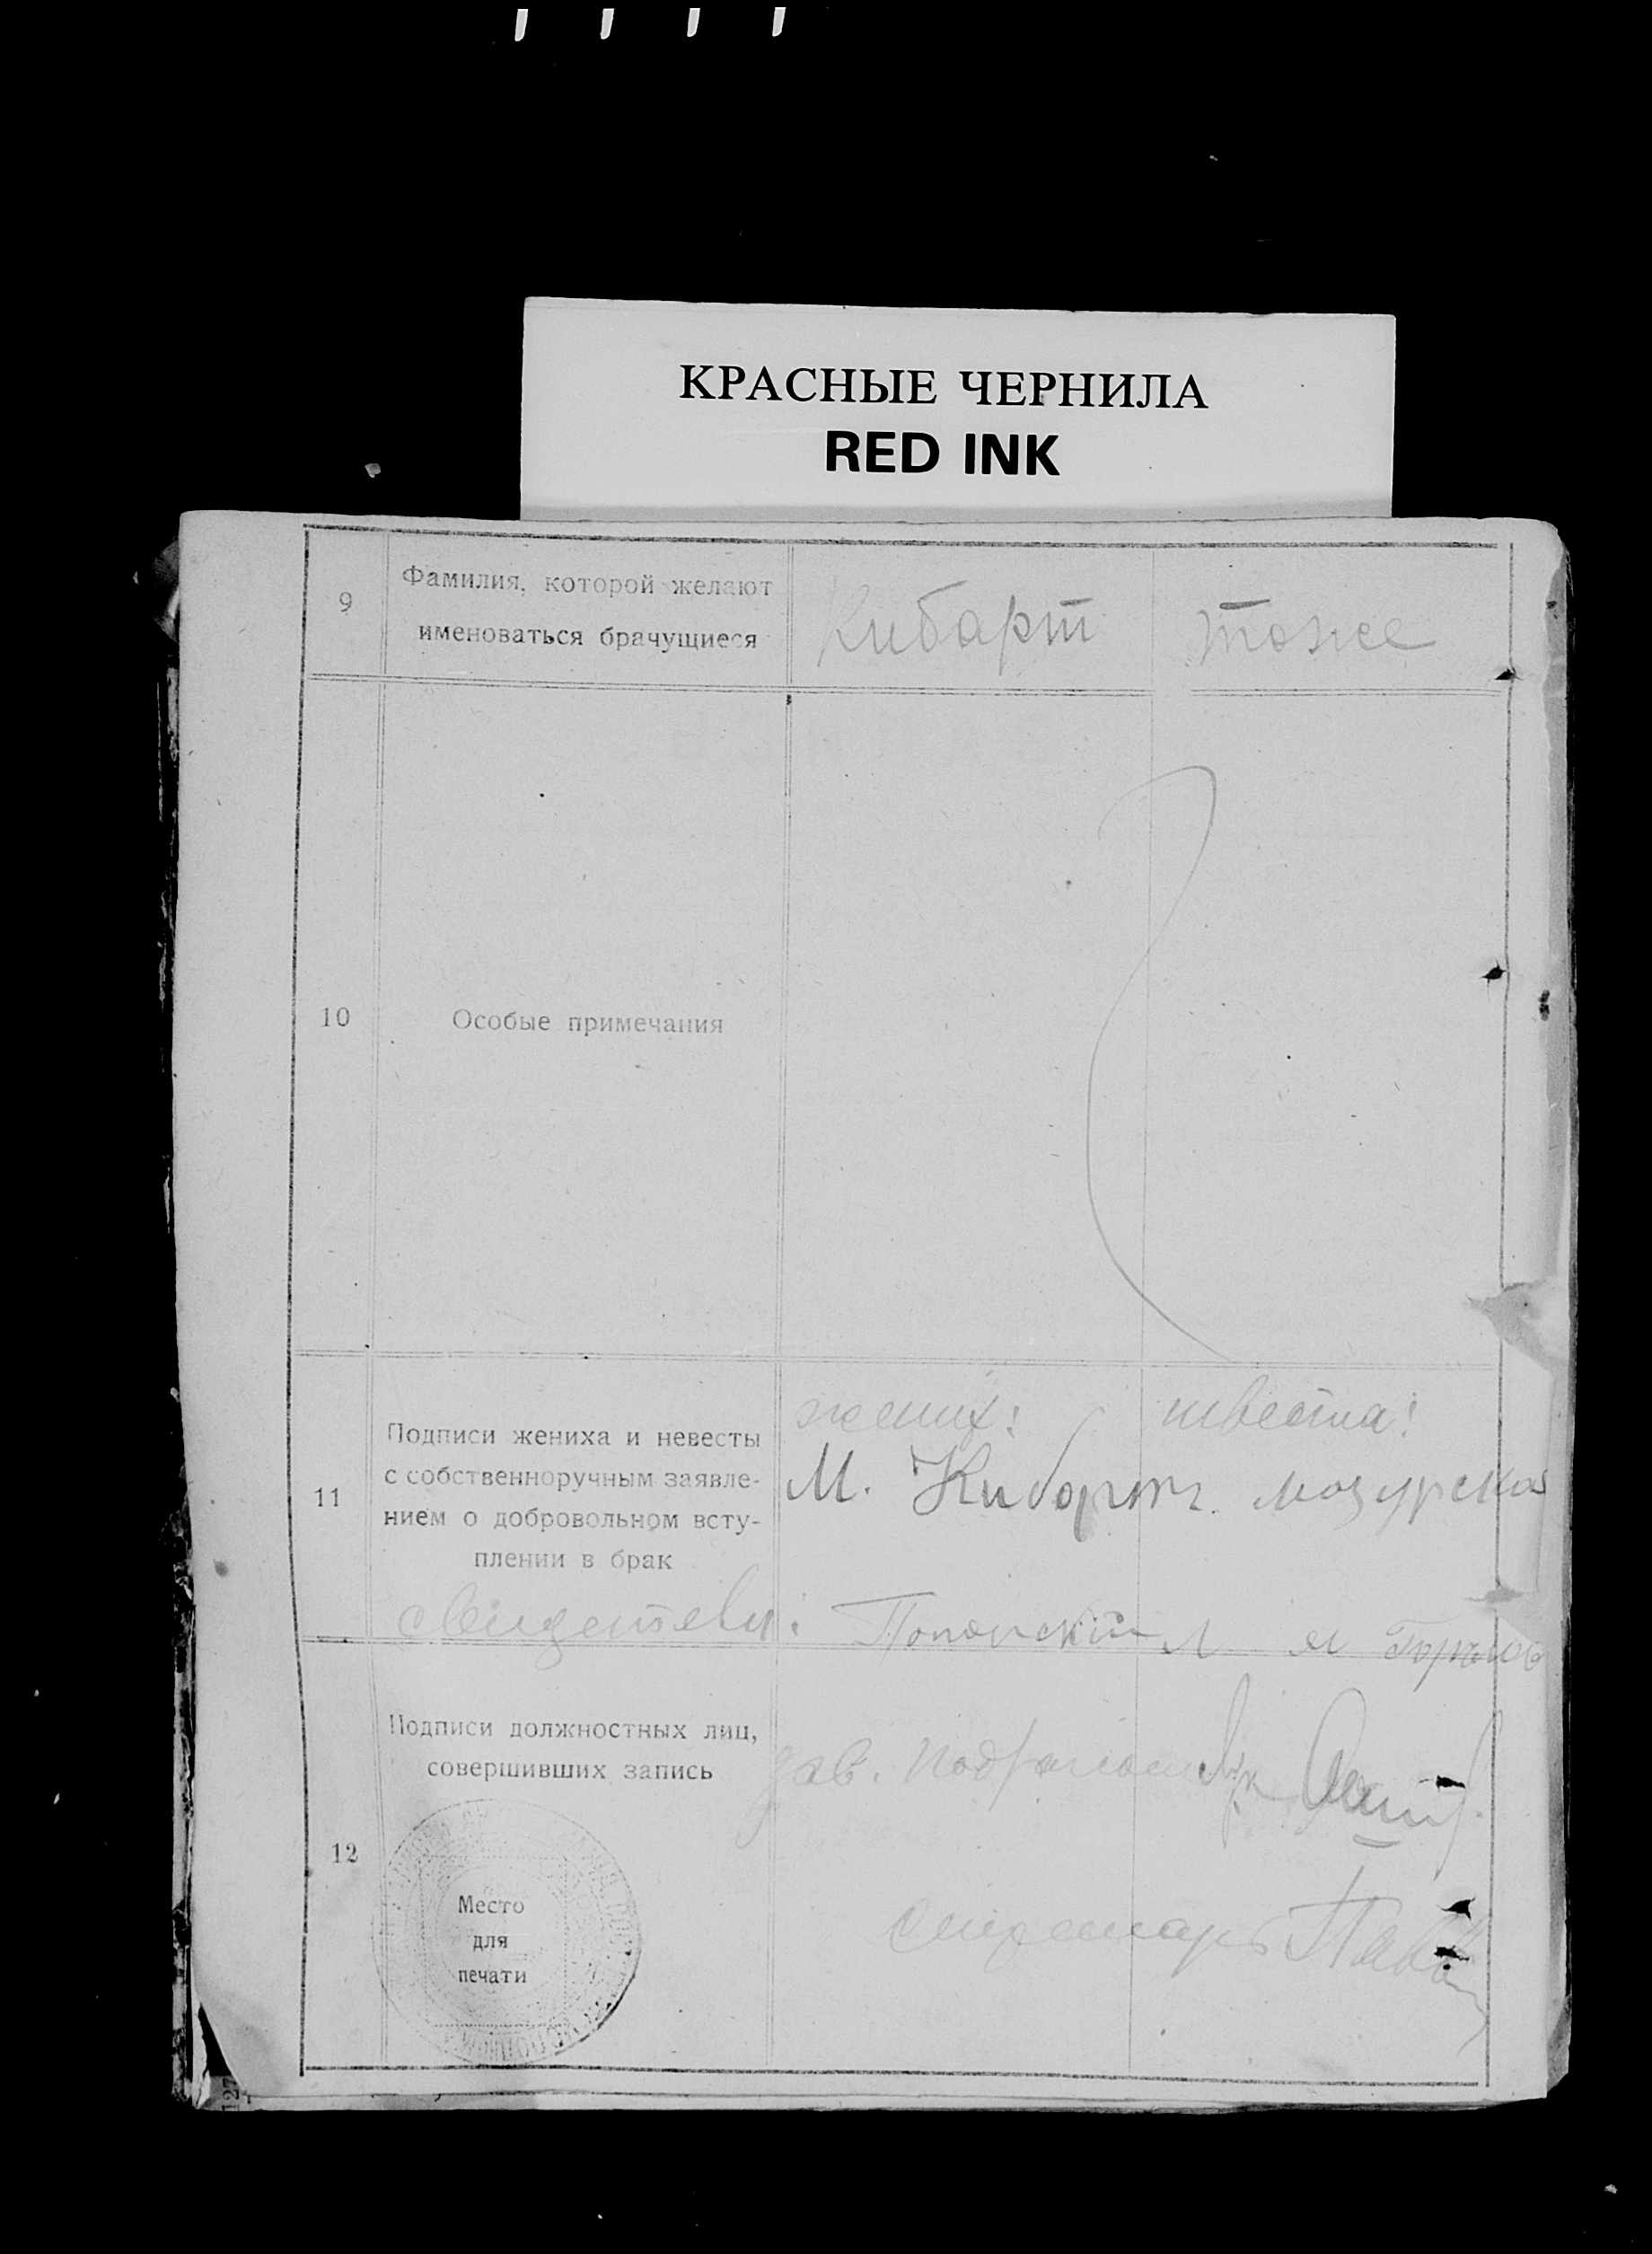 КРАСНЫЕ ЧЕРНИЛА
RED INK
9 Фамилия, которой желают
именоваться брачущиеся
Кибарт тоже
10 Особые примечания
жених: невеста:
11 Подписи жениха и невесты
с собственноручным заявле-
нием о добровольном всту-
плении в брак
М. Кибарт. мозурская
свидетели:
Подписи должностных лиц,
совершивших запись
зав.
12
секретарь
Место
для
печати